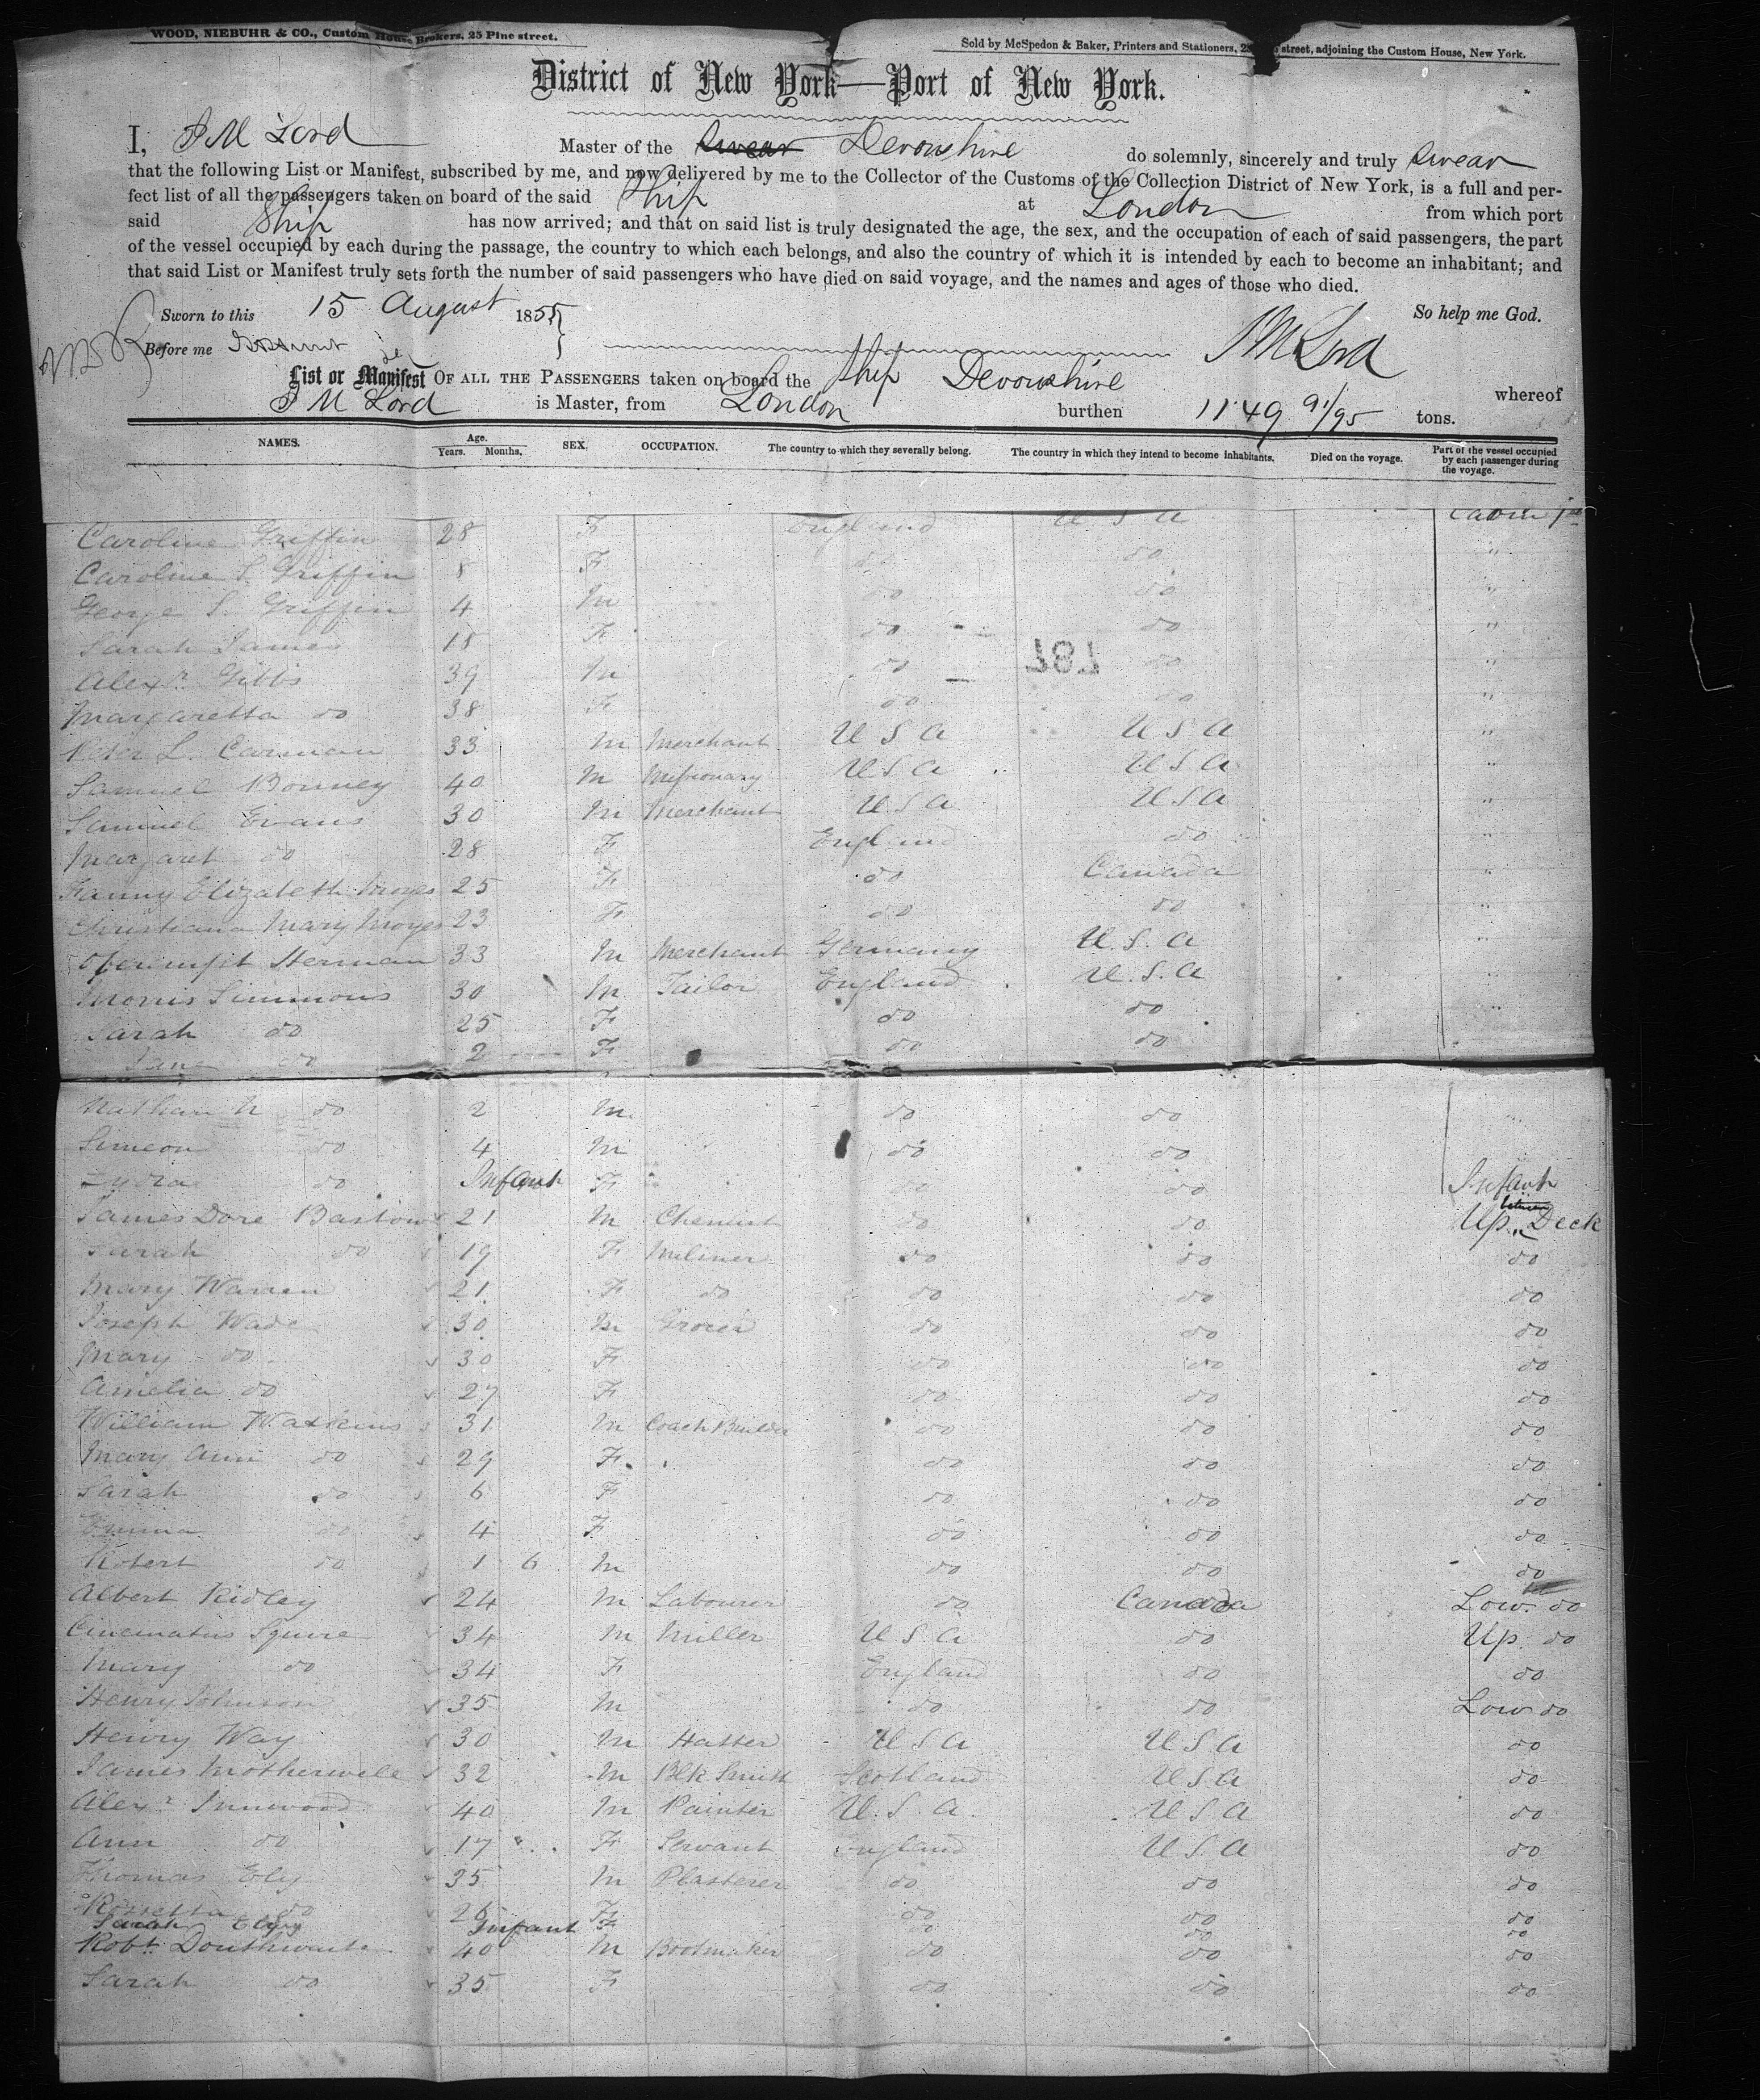 WOOD, NIEBUHR & CO., Custom House Brokers, 25 Pine street.
Sold by McSpedon & Baker, Printers and Stationers, street, adjoining the Custom House, New York.
District of New York—Port of New York.
I, J M Lord Master of the Swear Devonshire do solemnly, sincerely and truly swear
that the following List or Manifest, subscribed by me, and now delivered by me to the Collector of the Customs of the Collection District of New York, is a full and per-
fect list of all the passengers taken on board of the said Ship at London from which port
said Ship has now arrived; and that on said list is truly designated the age, the sex, and the occupation of each of said passengers, the part
of the vessel occupied by each during the passage, the country to which each belongs, and also the country of which it is intended by each to become an inhabitant; and
that said List or Manifest truly sets forth the number of said passengers who have died on said voyage, and the names and ages of those who died.
Sworn to this 15 August 1855 So help me God.
Before me J M Lord
List or Manifest OF ALL THE PASSENGERS taken on board the Ship Devonshire whereof
J M Lord is Master, from London burthen 1149 91/95 tons.
NAMES. Age. Years. Months. SEX. OCCUPATION. The country to which they severally belong. The country in which they intend to become inhabitants. Died on the voyage. Part of the vessel occupied by each passenger during the voyage.
Caroline Griffin 28 F England U S A Cabin
Caroline S. Griffin 8 F do do "
George S. Griffin 4 M do do "
Sarah James 18 F do do "
Alexr Gibbs 39 M do do "
787
Margaretta do 38 F do do "
Peter L. Carman 33 M Merchant U S A U S A "
Samuel Bonney 40 M Missionary U S A U S A "
Samuel Evans 30 M Merchant U S A U S A "
Margaret do 28 F England do "
Fanny Elizabeth Moyes 25 F do Canada "
Christiana Mary Moyes 23 F do do "
Herman 33 M Merchant Germany U. S. A "
Morris Simmons 30 M Tailor England U. S. A "
Sarah do 25 F do do
Jane do 2 F do do
Nathan N do 2 M do do
Simeon do 4 M do do
Lydia do Infant F do do Infant
James Dore Bastow 21 M Chemist do do Up between Deck
Sarah do 19 F Miliner do do do
Mary Warren 21 F do do do do
Joseph Wade 30 M Grocer do do do
Mary do 30 F do do do
Amelia do 27 F do do do
William Watkins 31 M Coach Builder do do do
Mary Ann do 29 F do do do
Sarah do 6 F do do do
Emma do 4 F do do do
Robert do 1 6 M do do do
Albert Ridley 24 M Labourer do Canada Low do
Cincinatus Squire 34 M Miller U S A do Up do
Mary do 34 F England do do
Henry Johnson 35 M do do Low do
Henry Way 30 M Hatter U S A U S A do
James Motherwell 32 M Blk Smith Scotland U S A do
Alexr Innwood 40 M Painter U. S. A. U S A do
Ann do 17 F Servant England U S A do
Thomas Ely 35 M Plasterer do do do
Rossetta do 26 F do do do
Sarah Elyy Infant F do do do
Robt Douthwaite 40 M Bootmaker do do do
Sarah do 35 F do do do